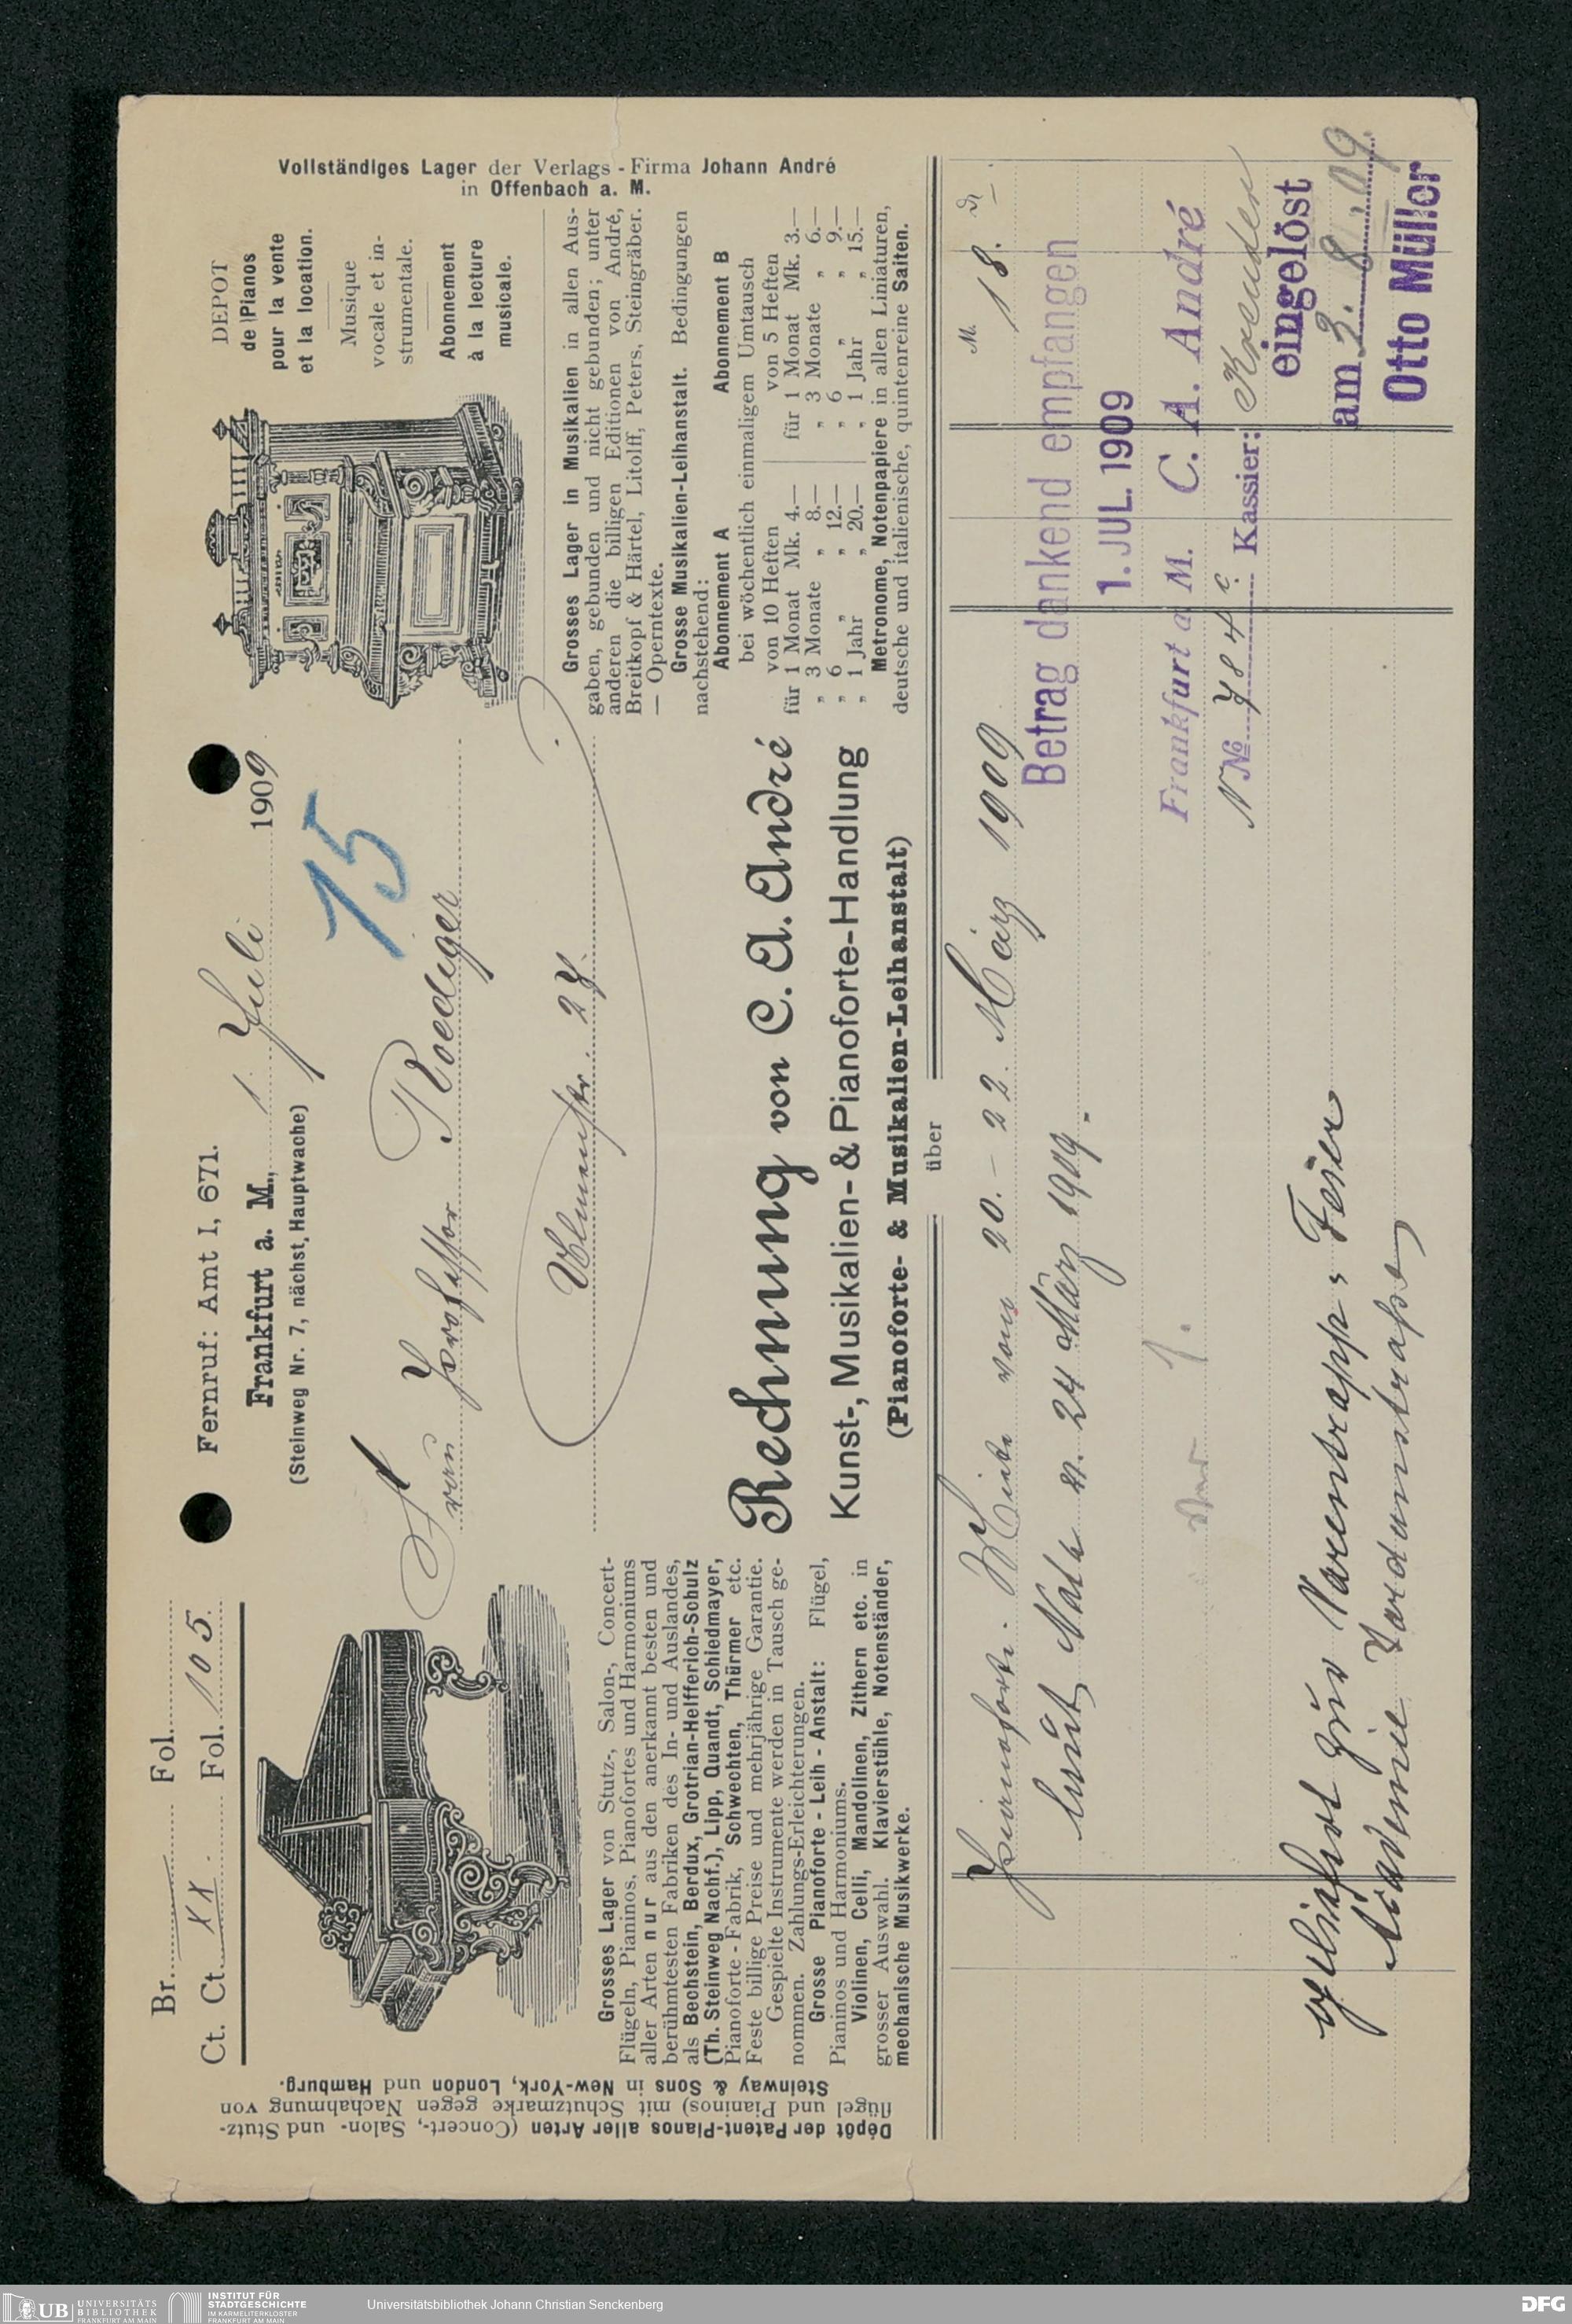 Br. Fol.
Ct. Ct. XX. Fol. 105.
Fernruf: Amt I, 671.
Frankfurt a. M., 1. Juli 1909
(Steinweg Nr. 7, nächst Hauptwache)
15
Frau Professor Roediger
27.
DEPOT
de Pianos
pour la vente
et la location.
Musique
vocale et in-
strumentale.
Abonnement
à la lecture
musicale.
Vollständiges Lager der Verlags-Firma Johann André
in Offenbach a. M.
Dépôt der Patent-Pianos aller Arten (Concert-, Salon- und Stutz-
flügel und Pianinos) mit Schutzmarke gegen Nachahmung von
Steinway & Sons in New-York, London und Hamburg.
Grosses Lager von Stutz-, Salon-, Concert-
Flügeln, Pianinos, Pianofortes und Harmoniums
aller Arten nur aus den anerkannt besten und
berühmtesten Fabriken des In- und Auslandes,
als Bechstein, Berdux, Grotrian-Helfferich-Schulz
(Th. Steinweg Nachf.), Lipp, Quandt, Schiedmayer,
Pianoforte-Fabrik, Schwechten, Thürmer etc.
Feste billige Preise und mehrjährige Garantie.
Gespielte Instrumente werden in Tausch ge-
nommen. Zahlungs-Erleichterungen.
Grosse Pianoforte-Leih-Anstalt: Flügel,
Pianinos und Harmoniums.
Violinen, Celli, Mandolinen, Zithern etc. in
grosser Auswahl. Klavierstühle, Notenständer,
mechanische Musikwerke.
Rechnung von C. A. André
Kunst-, Musikalien- & Pianoforte-Handlung
(Pianoforte- & Musikalien-Leihanstalt)
über
Grosses Lager in Musikalien in allen Aus-
gaben, gebunden und nicht gebunden; unter
anderen die billigen Editionen von André,
Breitkopf & Härtel, Litolff, Peters, Steingräber.
— Operntexte.
Grosse Musikalien-Leihanstalt. Bedingungen
nachstehend:
Abonnement A Abonnement B
bei wöchentlich einmaligem Umtausch
von 10 Heften von 5 Heften
für 1 Monat Mk. 4.— für 1 Monat Mk. 3.—
„ 3 Monate „ 8.— „ 3 Monate „ 6.—
„ 6 „ „ 12.— „ 6 „ „ 9.—
„ 1 Jahr „ 20.— „ 1 Jahr „ 15.—
Metronome, Notenpapiere in allen Liniaturen,
deutsche und italienische, quintenreine Saiten.
M.
Pianoforte-Miete vom 20.-22. März 1909 18.
laut Nota v. 24 März 1909.
Betrag dankend empfangen
1. JUL. 1909
Frankfurt a M. C. A. André
No 784 c Kassier:
eingelöst
am 3. 8. 09.
Otto Müller
geliefert zur Varrentrapp-Feier
Akademie Jordanstraße